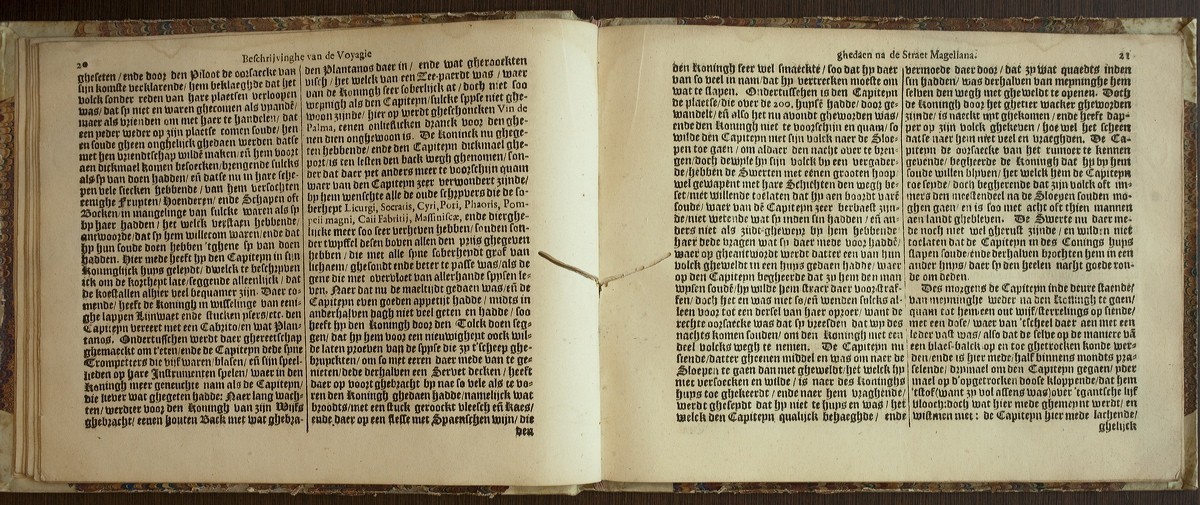 20
Beschrijvinghe van de Voyagie
gheseten / ende door den Piloot de oorsaecke van
sijn komste verklarende / hem beklaeghde dat het
volck sonder reden van hare plaetsen verloopen
was / dat sp niet en waren ghecomen als vpandẽ /
maer als vrienden om met haer te handelen / dat
een peder weder op zijn plaetse comen soude / hen
en soude gheen onghelijck ghedaen werden datse
met hen vriendtschap wilde maken eñ hem voort
aen dickmael komen besoecken / brengende sulcks
als sp van doen hadden / eñ datse nu in hare sche-
pen vele siecken hebbende / van hem versochten
eenighe Frupten / Hoenderen / ende Schapen oft
Bocken in mangelinge van sulcke waren als sp
bp haer hadden / het welck verstaen hebbende /
antwoorde / dat sp hem willecom waren / ende dat
hp hun soude doen hebben 'tghene sp van doen
hadden. Hier mede heeft hp den Capitepn in sijn
Koninghlijck hups gelept / dwelck te beschrpven
ick om de kortheyt late / seggende alleenlijck / dat
de koestallen alhier veel bequamer zijn. Daer co-
mende / heeft de Koningh in wisselinge van eeni-
ghe lappen Lijnwaet ende stucken pser / etc. den
Capitepn vereert met een Cabrito / en wat Plan-
tanos. Ondertusschen werdt daer ghereetschap
ghemaeckt om t'eten / ende de Capitepn dede spne
Trompetters die vijf waren / blasen / eñ sijn speel-
lieden op hare Instrumenten spelen / waer in den
Koningh meer geneuchte nam als de Capitepn /
die liever wat ghegeten hadde: Naer lang wach-
ten / werdter voor den Koningh van zijn Wijfs
ghebracht / eenen houten Back met wat ghebra-
den Plantanos daer in / ende wat gheroockten
visch / het welck van een Zee-paerdt was / waer
van de Koningh seer soberlijck at / doch niet soo
wepnigh als den Capitepn / sulcke spyse niet ghe-
woon zijnde / hier op werdt gheschoncken Vin de
Palma, eenen onliefelicken dranck voor den ghe-
nen dien onghewoon is. De Koninck nu ghege-
ten hebbende / ende den Capitepn dickmael ghe-
port / is ten lesten den back wegh ghenomen / son-
der dat daer pet anders meer te voorschijn quam
waer van den Capitepn zeer verwondert zijnde /
hp hem wenschte alle de oude schrpvers die de so-
berhept Licurgi, Socratis, Cyri, Pori, Phaoris, Pom-
peii magni, Caii Fabritij, Massinissæ, ende dierghe-
lijcke meer soo seer verheven hebben / souden son-
der twpffel desen boven allen den prijs ghegeven
hebben / die met alle spne soberhepdt grof van
lichaem / ghesondt ende beter te passe was / als de
gene die met overvloet van allerhande spysen le-
ven. Naer dat nu de maeltijdt gedaen was / eñ de
Capitepn even goeden appetijt hadde / midts in
anderhalven dagh niet veel geten en hadde / soo
heeft hp den Koningh door den Tolck doen seg-
gen / dat hp hem voor een nieuwighept oock wil-
de laten proeven van de spyse die zp t'scheep ghe-
bruyckten / om so met eenen daer mede van te ge-
nieten / dede derhalven een Servet decken / heeft
daer op voort ghebracht hp nae so vele als te vo-
ren den Koningh ghedaen hadde / namelijck wat
broodts / met een stuck geroockt vleesch eñ Kaes /
ende daer op een flesse met Spaenschen wijn / die
den
ghedaen na de Straet Magellana.
21
den Koningh seer wel smaeckte / soo dat hp daer
van so veel in nam / dat hp vertrecken moeste om
wat te slapen. Ondertusschen is den Capitepn
de plaetse / die over de 200. hupsẽ hadde / door ge-
wandelt / eñ alsoo het nu avondt gheworden was /
ende den Koningh niet te voorschijn en quam / so
wilde den Capitepn met sijn volck naer de Sloe-
pen toe gaen / om aldaer den nacht over te bren-
gen / doch dewple hp sijn volck bp een vergader-
de / hebben de Swerten met eenen grooten hoop /
wel gewapent met hare Schichten den wegh be-
set / niet willende toelaten dat hp aen boordt varẽ
soude / waer van de Capitepn zeer verbaest zijn-
de / niet wetende wat sp inden sin hadden / eñ an-
ders niet als zijdt-gheweyr bp hem hebbende
haer dede vragen wat sp daer mede voor haddẽ /
waer op gheantwoordt werdt datter een van hun
volck gheweldt in een hups gedaen hadde / waer
op den Capitepn begheerde dat sp hem den man
wpsen soudẽ / hp wilde hem strack daer voor straf-
fen / doch het en was niet so / eñ werden sulcks al-
leen voor tot een decksel van haer oproer / want de
rechte oorsaecke was dat sp vreesden dat wp des
nachts komen souden / om den Koningh met een
deel volcks wegh te nemen. De Capitepn nu
siende / datter gheenen middel en was om naer de
Sloepen te gaen dan met gheweldt / het welck hp
niet versoecken en wilde / is naer des Koninghs
hups toe ghekeerdt / ende naer hem vraghende /
werdt ghesepdt dat hp niet te hups en was / het
welck den Capitepn qualijck behaeghde / ende
vermoede daer door / dat zp wat quaedts inden
sin hadden / was derhalven van mepninghe hem
selven den wegh met gheweldt te openen. Doch
de Koningh door het ghetier wacker gheworden
zijnde / is naeckt upt ghekomen / ende heeft dap-
per op zijn volck ghekeven / hoewel het scheen
datse naer hem niet veel en vraeghden. De Ca-
pitepn de oorsaecke van het rumoer te kennen
gevende / begheerde de Koningh dat hp bp hem
soude willen blpven / het welck hem de Capitepn
toe sepde / doch begherende dat zijn volck oft im-
mers den meestendeel na de Sloepen souden mo-
ghen gaen / en is soo met acht oft thien mannen
aen landt ghebleven. De Swerte nu daer me-
de noch niet wel gherust zijnde / en wilden niet
toelaten dat de Capitepn in des Conings hups
slapen soude / ende derhalven brochten hem in een
ander hups / daer sp den heelen nacht goede ron-
de om deden.
Des morgens de Capitepn inde deure staende /
van mepninghe weder na den Koningh te gaen /
quam tot hem een out wijf / sterrelings op siende /
met een dose / waer van 'tscheel daer aen met een
leder vast was / also dat de selve op de maniere vã
een blaes-balck op en toe ghetrocken konde wer-
den / ende is hier mede / half binnens mondts pra-
selende / drpmael om den Capitepn gegaen / pder
mael op d'opgetrocken doose kloppende / dat hem
'tstof (want zp vol assens was) over 'tgantsche lijf
vlooch: doch wat hier mede ghemepnt werdt / en
wistmen niet: de Capitepn hier mede lachende /
ghelijck